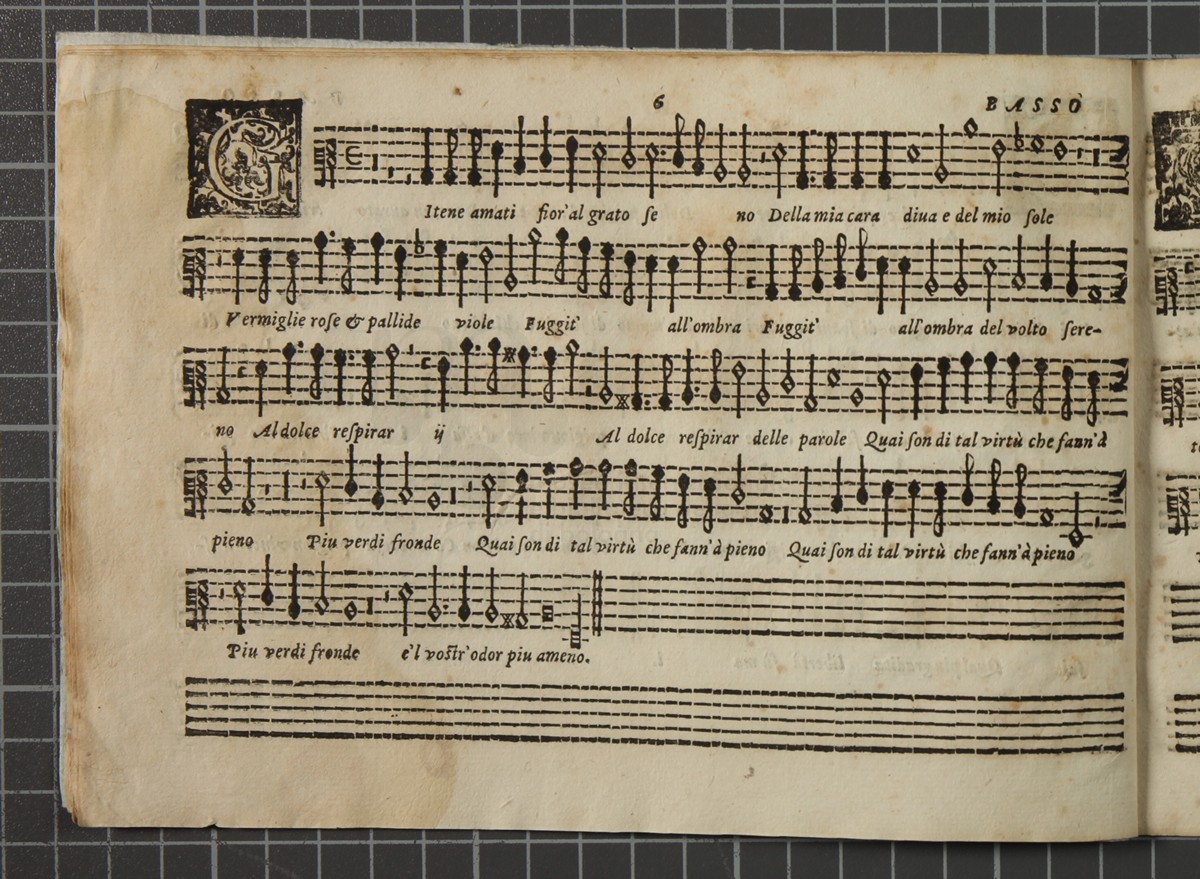 6 BASSO
GItene amati fior'al grato ſe no Della mia cara diua e del mio ſole
Vermiglie roſe & pallide viole Fuggit' all'ombra Fuggit' all'ombra del volto ſere-
no Al dolce reſpirar ij Al dolce reſpirar delle parole Quai ſon di tal virtù che fann'à
pieno Piu verdi fronde Quai ſon di tal virtù che fann'à pieno Quai ſon di tal virtù che fann'à pieno
Piu verdi fronde e'l voſtr'odor piu ameno.